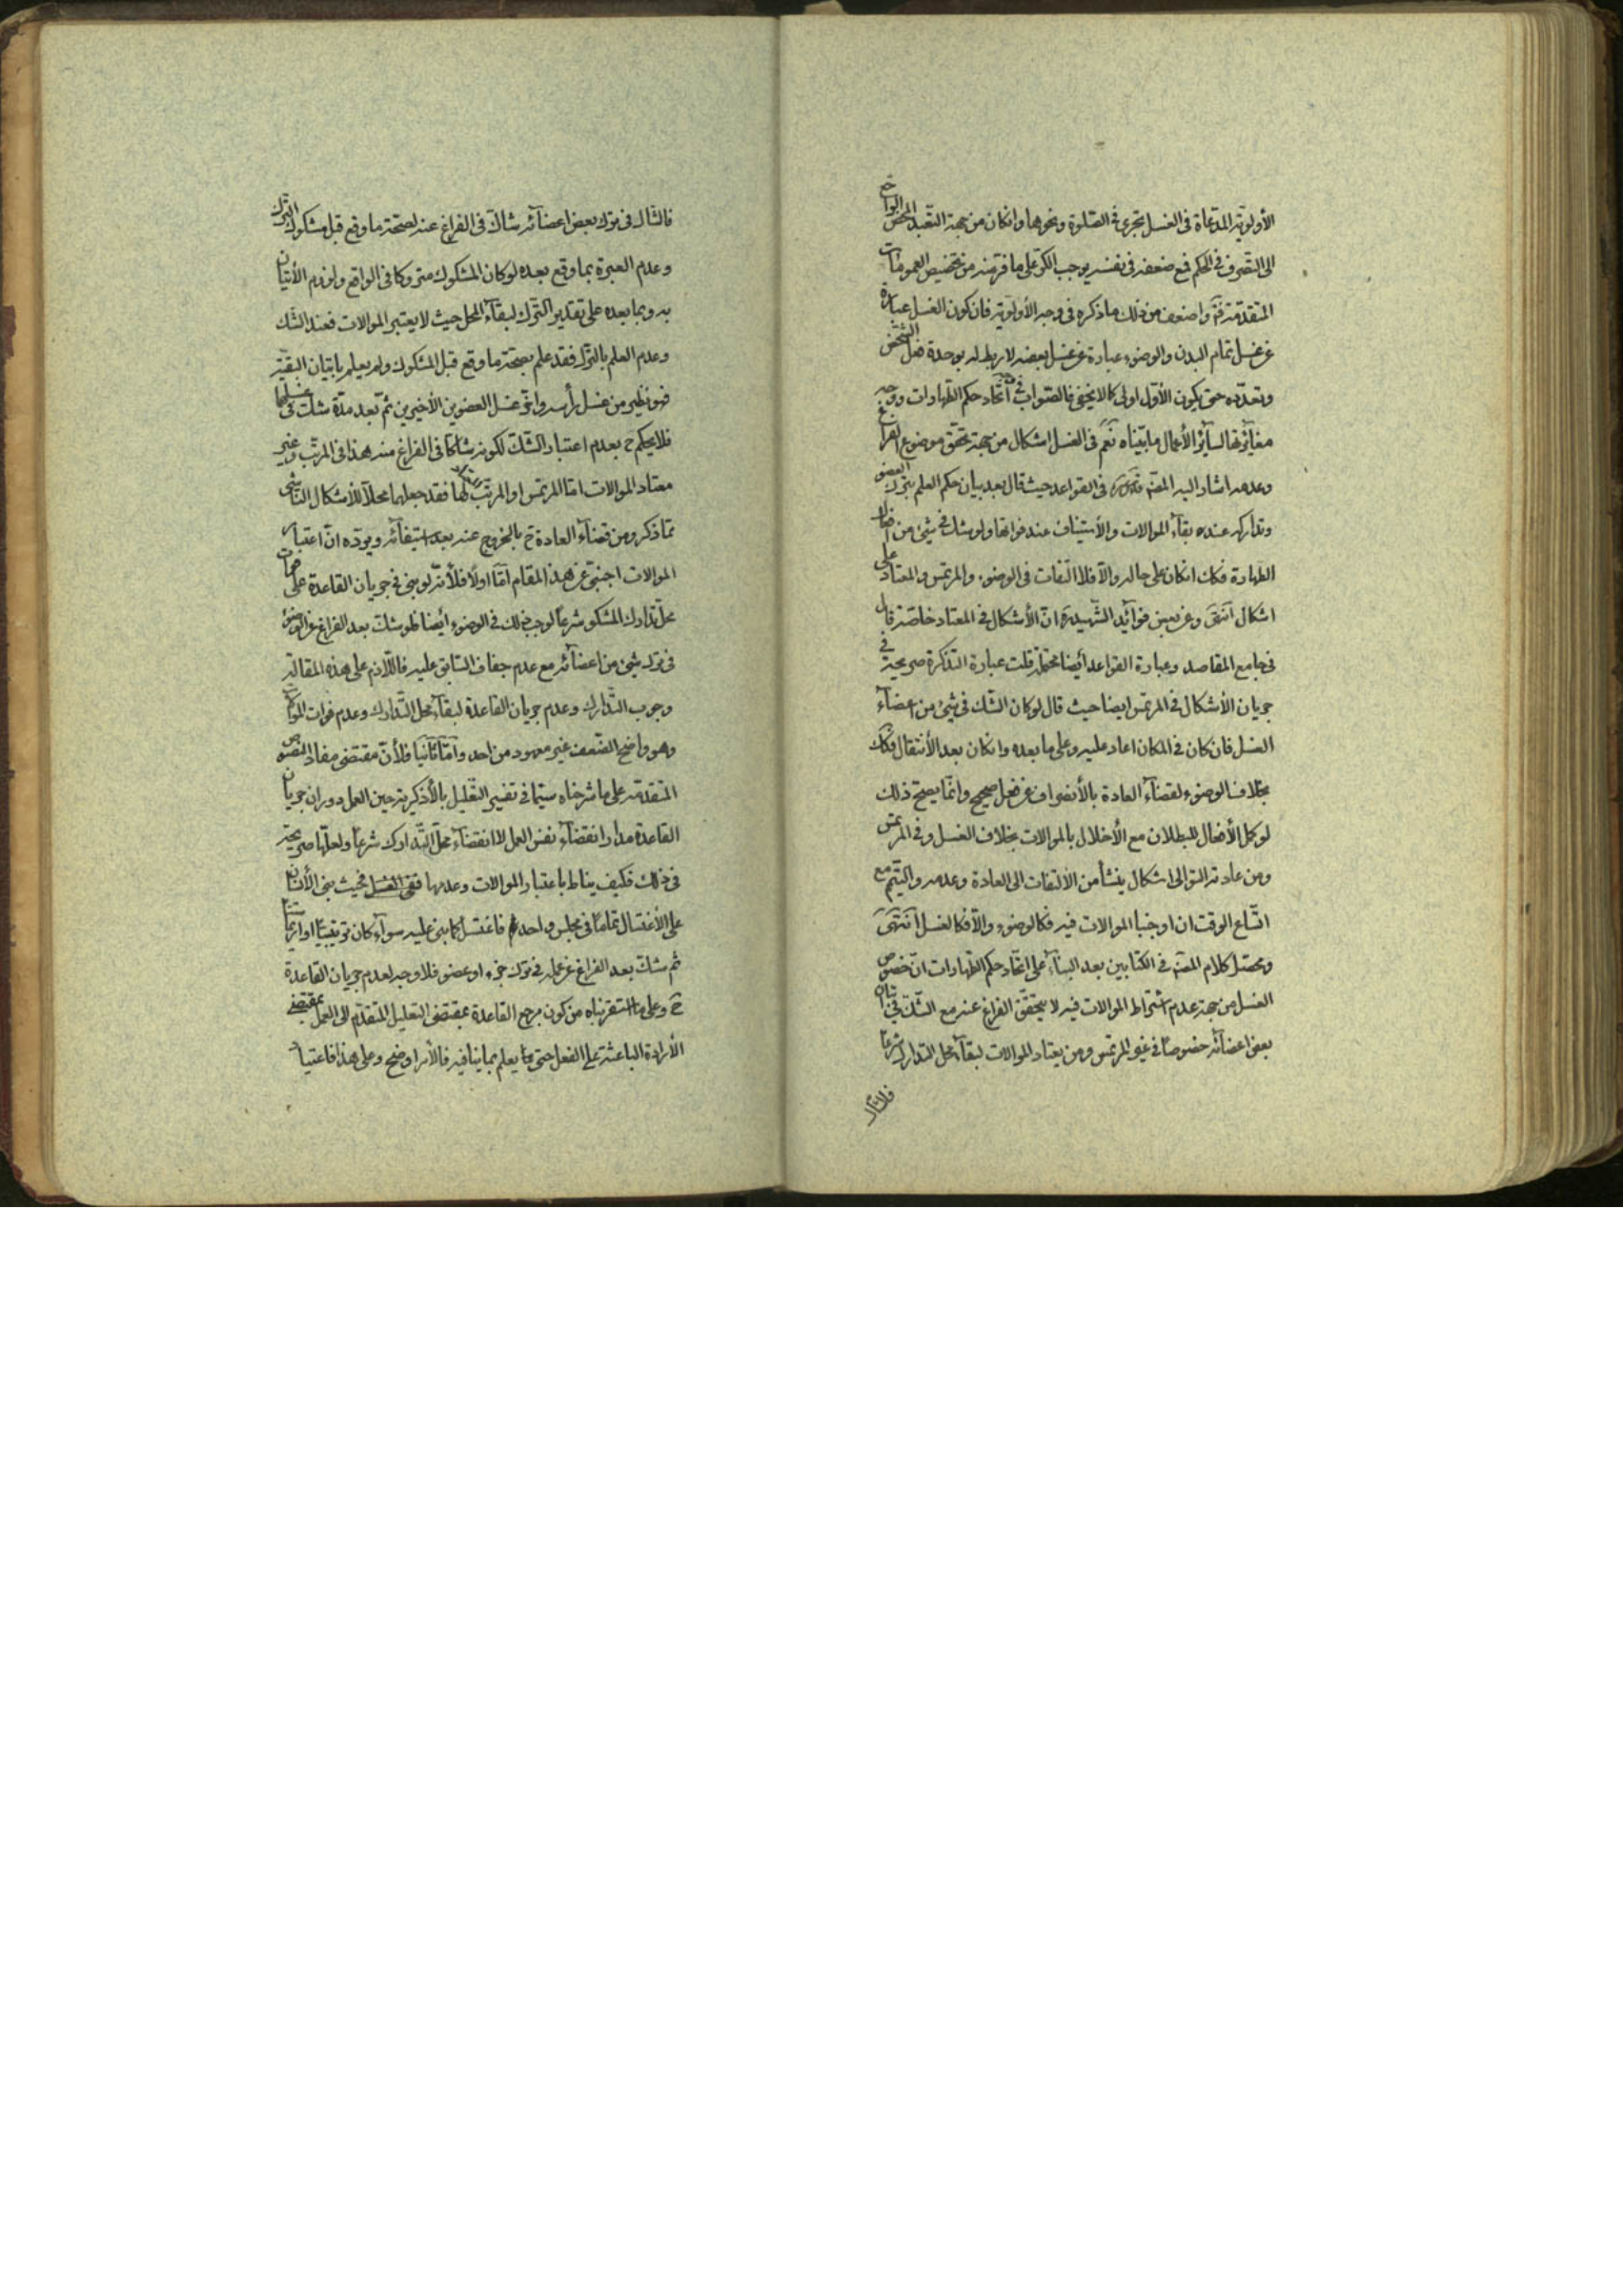 الأولويّة المدّعاة فى الغسل تجرى فى الصّلوة ونحوها وانكان من جهة التّعبد المحض الراجع
الى التّصرف فى الحكم فمع ضعفه فى نفسه يوجب الكرّ على ما فرّ منه من تخصيص العمومات
المتقدّمة واضعف من ذلك ما ذكره فى وجه الأولويّة فان كون الغسل عبارة
عن غسل تمام البدن والوضوء عبارة عن غسل بعضه لا ربط له بوحدة فعل الشخص
وتعدّده حتى يكون الأوّل اولى كما لا يخفى فالصّواب فى اتّحاد حكم الطّهارات ووجه
مغايرتها لسآئر الأعمال ما بيّناه نعم فى الغسل اشكال من جهة تحقّق موضوع الفراغ
وعدمه اشار اليه المصنّف فى القواعد حيث قال بعد بيان حكم العلم بترك العضو
وتداركه عنده بقآء الموالات والأستيناف عند فواتها ولو شك فى شئ من افعال
الطهارة فكك انكان على حاله والّا فلا التفات فى الوضوء والمرتمس والمعتاد على
اشكال انتهى وعن بعض فوائد الشّهيد انّ الأشكال فى المعتاد خاصّة قال
فى جامع المقاصد وعبارة القواعد أيضا محتملة قلت عبارة التذكرة صريحة فى
جريان الأشكال فى المرتمس ايضا حيث قال لو كان الشّك فى شئ من اعضآء
الغسل فان كان فى المكان اعاد عليه وعلى ما بعده وانكان بعد الأنتقال فكك
بخلاف الوضوء لقضآء العادة بالأنصراف عن فعل صحيح وانّما يصحّ ذلك
لو كمل الأفعال للبطلان مع الأخلال بالموالات بخلاف الغسل وفى المرتمس
ومن عادته التوالى اشكال ينشأ من الألتفات الى العادة وعدمه والتيمّم مع
اتّساع الوقت ان اوجبنا الموالات فيه فكالوضوء والّا فكالغسل انتهى
ومحصّل كلام المصنّف فى الكتابين بعد البنآء على اتّحاد حكم الطّهارات انّ خصوص
الغسل من جهة عدم اشتراط الموالات فيه لا يتحقّق الفراغ عنه مع الشّك فى اتيان
بعض اعضآئه خصوصا فى غير المرتمس ومن يعتاد الموالات لبقآء محل التدارك شرعا
فالشّاك
فالشّاك فى ترك بعض اعضآئه شاك فى الفراغ عنه لصحّة ما وقع قبل مشكوك الترك
وعدم العبرة بما وقع بعده لو كان المشكوك متروكا فى الواقع ولزوم الأتيان
به وبما بعده على تقدير الترك لبقآء المحل حيث لا يعتبر الموالات فعند الشّك
وعدم العلم بالترك فقد علم بصحّة ما وقع قبل المشكوك ولم يعلم باتيان البقيّة
فهو نظير من غسل رأسه واخّر غسل العضوين الأخيرين ثم بعد مدّة شك فى غسلهما
فلا يحكم ح بعدم اعتبار الشّك لكونه شاكا فى الفراغ منه هذا فى المرتّب وغير
معتاد الموالات امّا المرتمس او المرتّب فقد جعلهما محلّا للأشكال الناشى
ممّا ذكر ومن قضآء العادة ح بالخروج عنه بعد استيفآئه ويردّه انّ اعتبار
الموالات اجنبىّ عن هذا المقام امّا اولا فلأنّه لو بنى فى جريان القاعدة على فوات
محلّ تدارك المشكوك شرعا لوجب ذلك فى الوضوء أيضا فلو شك بعد الفراغ عن الوضوء
فى ترك شئ من اعضآئه مع عدم جفاف السّابق عليه فاللّازم على هذه المقالة
وجوب التّدارك وعدم جريان القاعدة لبقآء محل التّدارك وعدم فوات الموالات
وهو واضح الضّعف غير معهود من احد وامّا ثانيا فلأنّ مقتضى مفاد النصوص
المتقدّمة على ما شرحناه سيّما فى تفسير التّعليل بالأذكريّة حين العمل دوران جريان
القاعدة مدار انقضآء نفس العمل لا انقضآء محلّ التّدارك شرعا ولعلّها صريحة
فى ذلك فكيف يناط باعتبار الموالات وعدمها ففى الغسل فحيث بنى الأنسان
على الأغتسال تماما فى مجلس واحد فاغتسل كما بنى عليه سوآء كان ترتيبيّا او ارتماسيّا
ثم شك بعد الفراغ عن عمله فى ترك جزء او عضو فلا وجه لعدم جريان القاعدة
ح وعلى ما استقربناه من كون مرجع القاعدة بمقتضى التعليل المتقدّم الى العمل بمقتضى
الأرادة الباعثة على الفعل حتى يعلم بما ينافيه فالأمر اوضح وعلى هذا فاعتبار